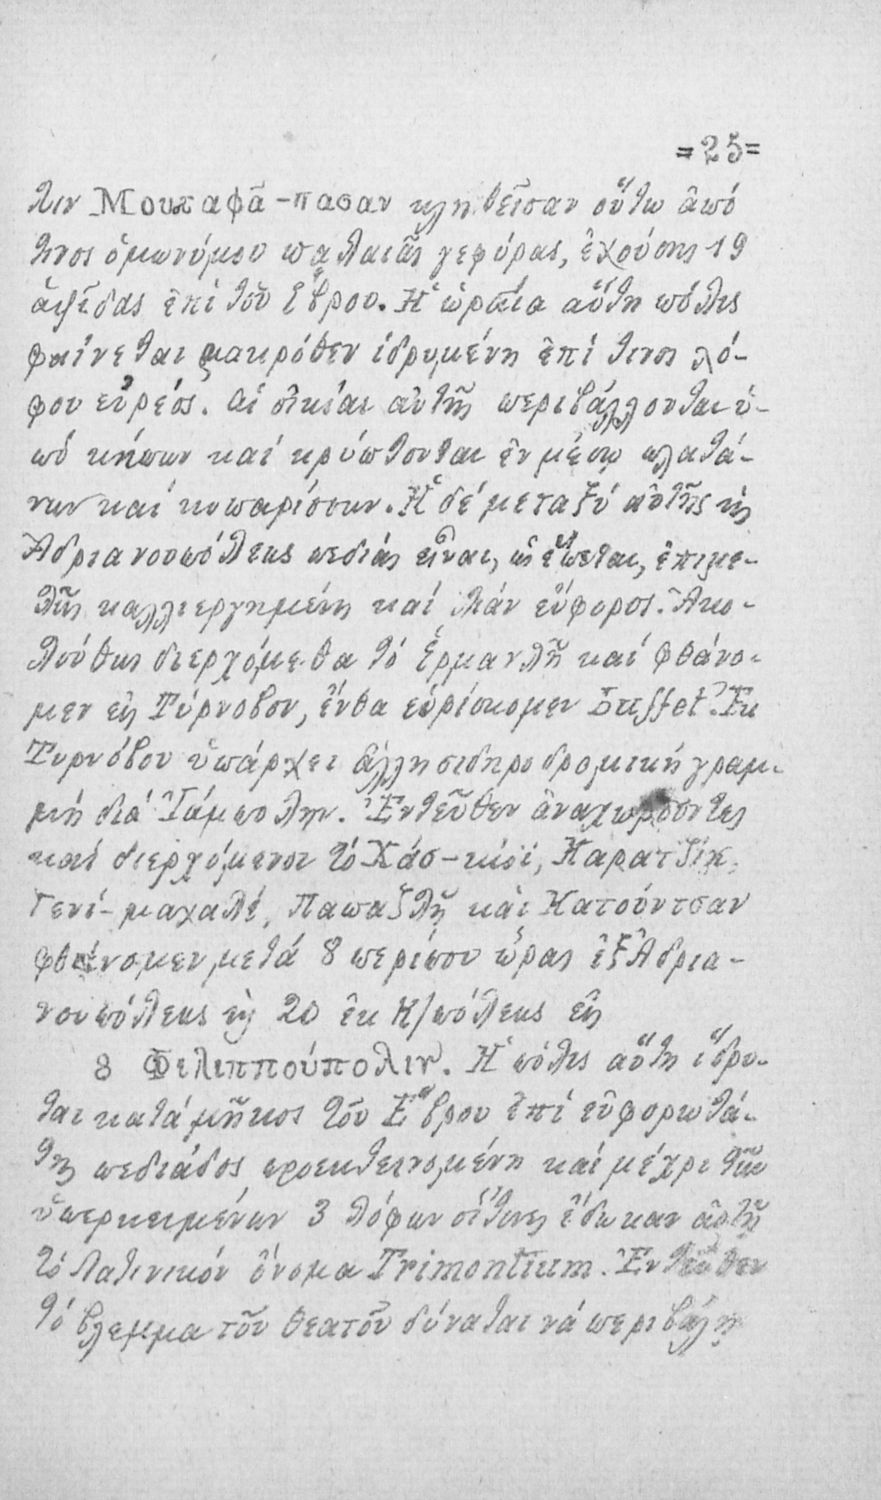 =25=
λιν Μουχαφᾶ-πασαν κληθεῖσαν οὕτω ἀπό
τινος ὁμωνύμου παλαιᾶς γεφύρας, ἐχούσης 19
ἁψῖδας ἐπί τοῦ Ἕβρου. Ἡ ὡραία αὕτη πόλις
φαίνεται μακρόθεν ἱδρυμένη ἐπί τινος λό-
φου εὐρέος. Αἱ οἰκίαι αὐτῆς περιβάλλονται ὑ-
πό κήπων καί κρύπτονται ἐν μέσῳ πλατά-
νων καί κυπαρίσσων. Ἡ δέ μεταξύ αὐτῆς κ
Ἀδριανουπόλεως πεδιάς εἶναι, ὡς ἕπεται, ἐπιμε-
λῶς καλλιεργημένη καί λίαν εὔφορος. Ἀκο-
λούθως διερχόμεθα τό Ἑρμανλῆ καί φθάνο-
μεν εἰς Τύρνοβον, ἔνθα εὑρίσκομεν Buffet. Ἐκ
Τυρνόβου ὑπάρχει ἄλλη σιδηροδρομική γραμ-
μή διά Ἰάμπολην. Ἐντεῦθεν ἀναχωροῦντες
καί διερχόμενοι τό Χάσ-κιοϊ, Καρατζίκ,
Γενί-μαχαλέ, Παπαζλῆ καί Κατούντσαν
φθάνομεν μετά 8 περίπου ὥρας ἐξ Ἀδρια-
νουπόλεως κ 20 ἐκ Κ/πόλεως εἰς
8 Φιλιππούπολιν. Ἡ πόλις αὕτη ἵδρυ-
ται κατά μῆκος τοῦ Ἕβρου ἐπί εὐφορωτά-
της πεδιάδος προεκτεινομένη καί μέχρι τῶν
ὑπερκειμένων 3 λόφων οἵτινες ἔδωκαν αὐτῇ
τό Λατινικόν ὄνομα Trimontium. Ἐντεῦθεν
τό βλεμμα τοῦ θεατοῦ δύναται νά περιβάλῃ